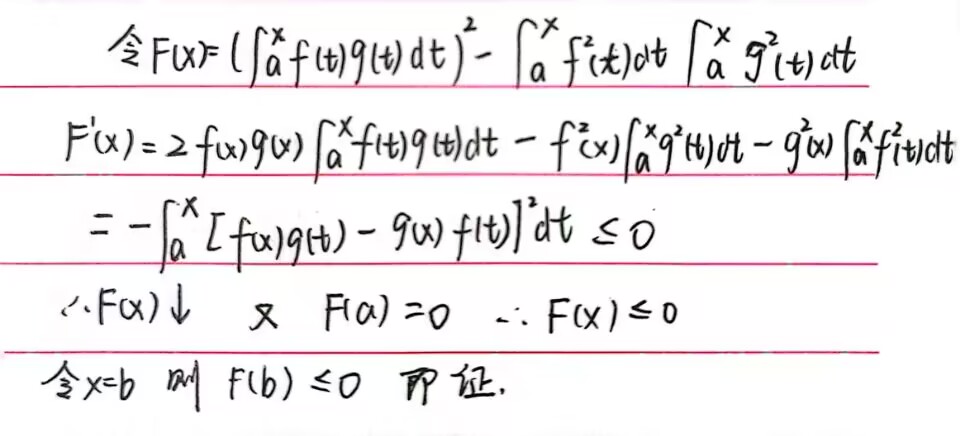 令F(x)=(∫ₐˣf(t)g(t)dt)²-∫ₐˣf²(t)dt∫ₐˣg²(t)dt
F'(x)=2f(x)g(x)∫ₐˣf(t)g(t)dt-f²(x)∫ₐˣg²(t)dt-g²(x)∫ₐˣf²(t)dt
=-∫ₐˣ[f(x)g(t)-g(x)f(t)]²dt≤0
∴F(x)↓ 又 F(a)=0 ∴F(x)≤0
令x=b 则 F(b)≤0 即证.